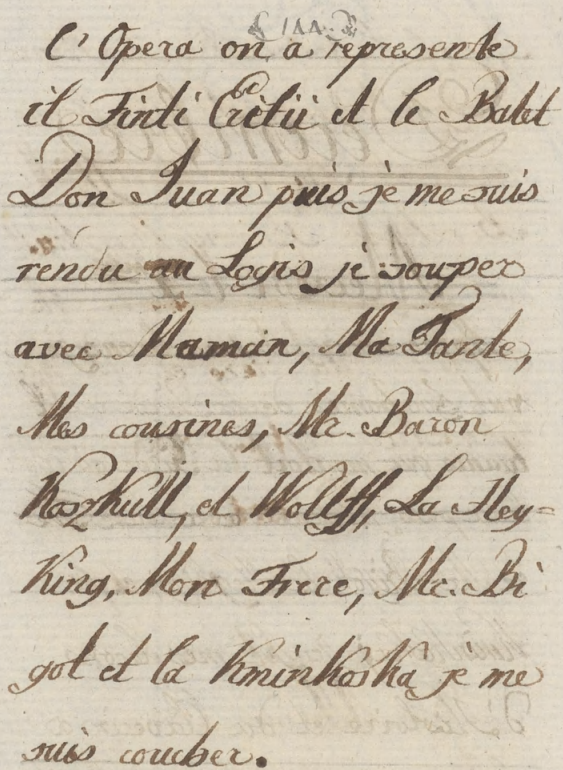 (144)
l'Opera on a represente
il Finti Eredi et le Balet
Don Juan puis je me suis
rendu au Logis je souper
avec Maman, Ma Tante,
Mes cousines, Mr. Baron
KoszKull, et Wolff, La Hey=
King, Mon Frere, Mr. Bi
got et la KminKosKa je me
suis coucher.